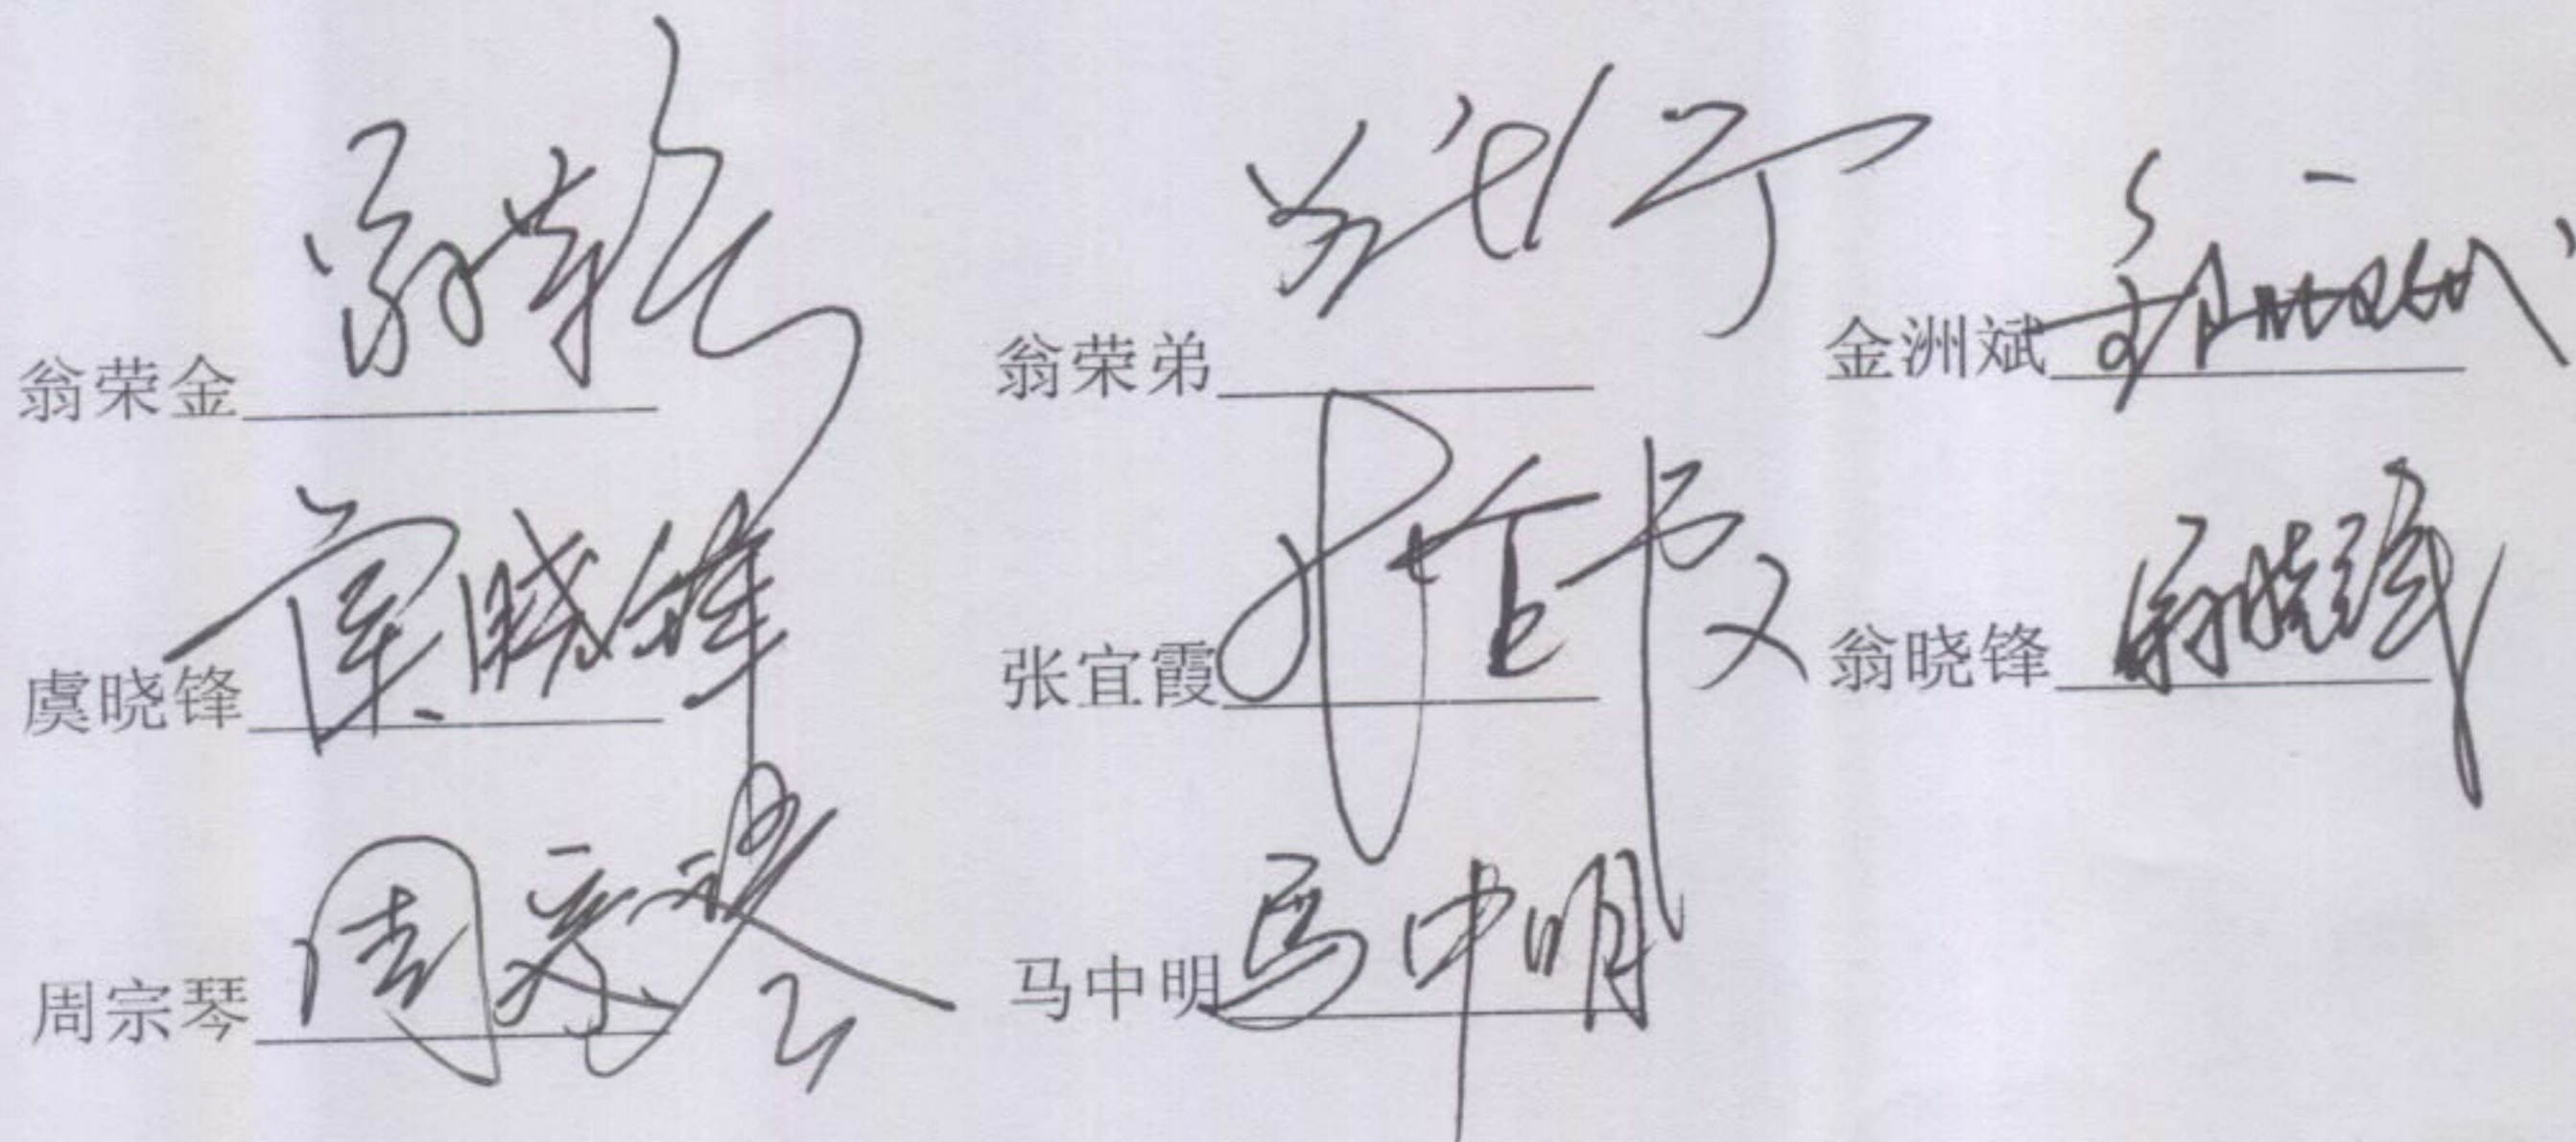 翁荣金 翁荣弟 金洲斌
虞晓锋 虞晓锋 张宜霞 张宜霞 翁晓锋 翁晓锋
周宗琴 周宗琴 马中明 马中明